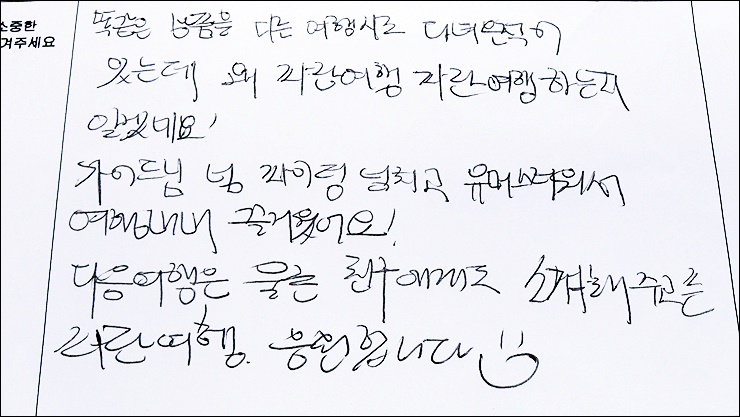 소중한
겨주세요
똑같은 상품을 다른 여행사로 다녀온적이
있는데 왜 파란여행 파란여행 하는지
알겠네요!
가이드님 넘 파이팅 넘치고 유머스러워서
여행내내 즐거웠어요!
다음여행은 물론 친구에게도 소개해 주고픈
파란여행. 응원합니다